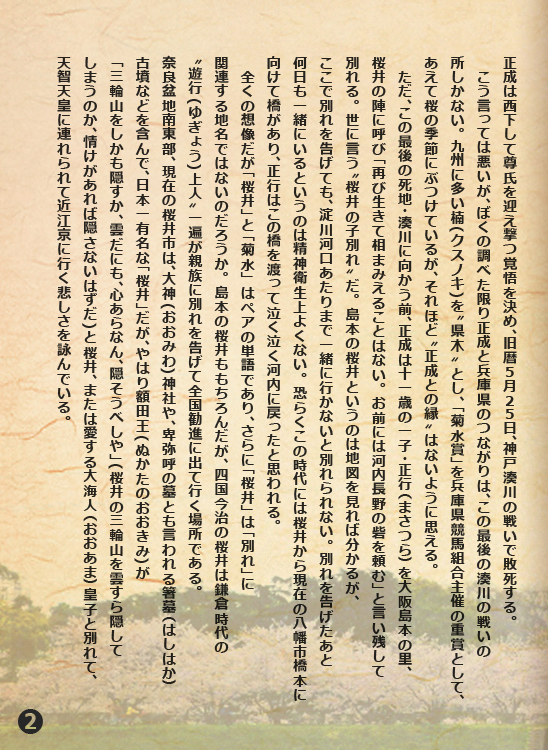 正成は西下して尊氏を迎え撃つ覚悟を決め、旧暦５月２５日、神戸湊川の戦いで敗死する。
こう言っては悪いが、ぼくの調べた限り正成と兵庫県のつながりは、この最後の湊川の戦いの
所しかない。九州に多い楠(クスノキ)を〝県木〟とし、「菊水賞」を兵庫県競馬組合主催の重賞として、
あえて桜の季節にぶつけているが、それほど〝正成との縁〟はないように思える。
ただ、この最後の死地・湊川に向かう前、正成は十一歳の一子・正行(まさつら)を大阪島本の里、
桜井の陣に呼び「再び生きて相まみえることはない。お前には河内長野の砦を頼む」と言い残して
別れる。世に言う〝桜井の子別れ〟だ。島本の桜井というのは地図を見れば分かるが、
ここで別れを告げても、淀川河口あたりまで一緒に行かないと別れられない。別れを告げたあと
何日も一緒にいるというのは精神衛生上よくない。恐らくこの時代には桜井から現在の八幡市橋本に
向けて橋があり、正行はこの橋を渡って泣く泣く河内に戻ったと思われる。
全くの想像だが「桜井」と「菊水」はペアの単語であり、さらに「桜井」は「別れ」に
関連する地名ではないのだろうか。島本の桜井ももちろんだが、四国今治の桜井は鎌倉時代の
〝遊行(ゆぎょう)上人〟一遍が親族に別れを告げて全国勧進に出て行く場所である。
奈良盆地南東部、現在の桜井市は、大神(おおみわ)神社や、卑弥呼の墓とも言われる箸墓(はしはか)
古墳などを含んで、日本一有名な「桜井」だが、やはり額田王(ぬかたのおおきみ)が
「三輪山をしかも隠すか、雲だにも、心あらなん、隠そうべしや」(桜井の三輪山を雲すら隠して
しまうのか、情けがあれば隠さないはずだ)と桜井、または愛する大海人(おおあま)皇子と別れて、
天智天皇に連れられて近江京に行く悲しさを詠んでいる。
2